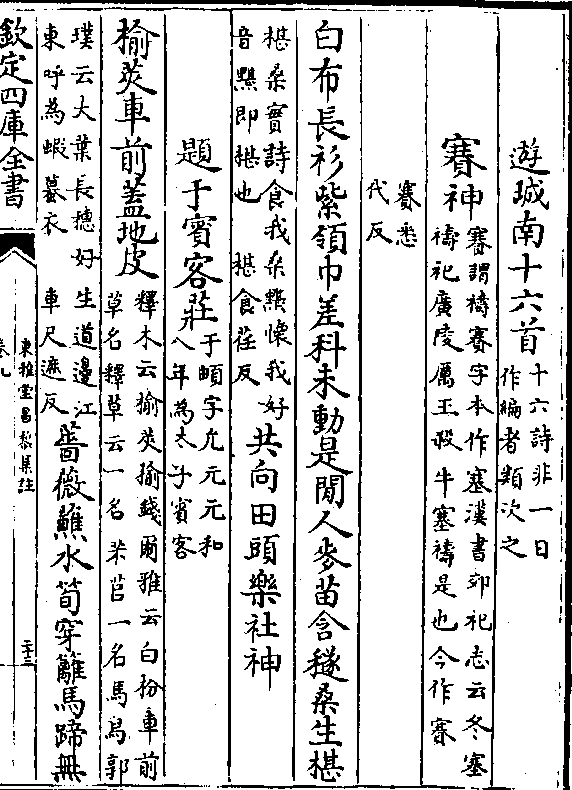 遊城南十六首十六詩非一日作編者類次之
賽神賽謂禱賽字本作塞漢書郊祀志云冬塞禱祀廣陵厲王殺牛塞禱是也今作賽
賽悉代反
白布長衫紫領巾差科未動是閒人麥苗含穟桑生椹
椹桑實詩食我桑黮懷我好音黮即椹也 椹食荏反共向田頭樂社神
題于賓客莊于頔字允元元和八年為太子賓客
榆莢車前蓋地皮釋木云榆莢榆錢爾雅云白枌車前草名釋草云一名芣苢一名馬舄郭
璞云大葉長穗好生道邊江東呼為蝦蟇衣 車尺遮反薔薇蘸水筍穿籬馬蹄無
欽定四庫全書
東雅堂昌黎集註
卷九
二十三